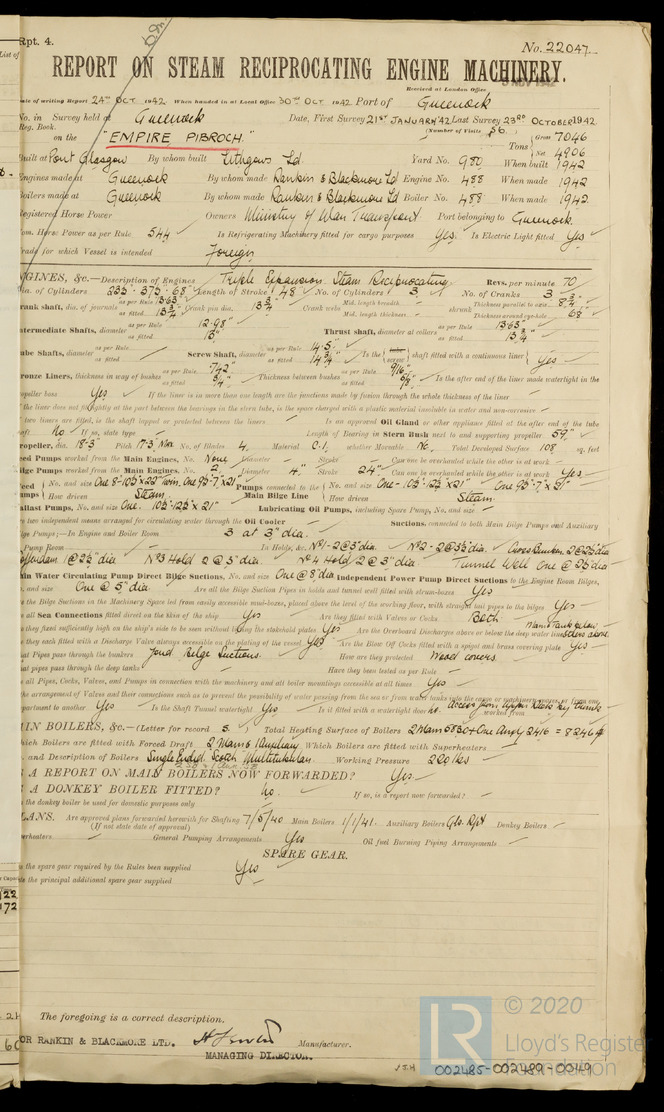 Rpt. 4.
No. 22047
REPORT ON STEAM RECIPROCATING ENGINE MACHINERY.
Received at London Office
NOV 1942
of writing Report 24TH OCT 1942 When handed in at Local Office 30TH OCT 1942 Port of Greenock
No. in Survey held at Greenock Date, First Survey 21ST JANUARY '42 Last Survey 23RD OCTOBER 1942
Reg. Book. (Number of Visits 56)
on the "EMPIRE PIBROCH." Tons Gross 7046
Net 4906
Built at Port Glasgow By whom built Lithgows Ld Yard No. 980 When built 1942
Engines made at Greenock By whom made Rankin & Blackmore Ld Engine No. 488 When made 1942
Boilers made at Greenock By whom made Rankin & Blackmore Ld Boiler No. 488 When made 1942
Registered Horse Power Owners Ministry of War Transport Port belonging to Greenock
Nom. Horse Power as per Rule 544 Is Refrigerating Machinery fitted for cargo purposes Yes. Is Electric Light fitted Yes
Trade for which Vessel is intended Foreign
ENGINES, &c.—Description of Engines Triple Expansion Steam Reciprocating. Revs. per minute 70
Dia. of Cylinders 23½ - 37½ - 68 Length of Stroke 48 No. of Cylinders 3 No. of Cranks 3
Crank shaft, dia. of journals as per Rule 13.63 as fitted 13¾ Crank pin dia. 13¾ Crank webs Mid. length breadth Mid. length thickness shrunk Thickness parallel to axis 8¾ Thickness around eye-hole 6⅞
Intermediate Shafts, diameter as per Rule 12.98" as fitted 13" Thrust shaft, diameter at collars as per Rule 13.63" as fitted 13¾"
Tube Shafts, diameter as per Rule as fitted Screw Shaft, diameter as per Rule 14.5" as fitted 14¾" Is the screw shaft fitted with a continuous liner Yes
Bronze Liners, thickness in way of bushes as per Rule .742" as fitted ¾" Thickness between bushes as per Rule 9/16" as fitted Is the after end of the liner made watertight in the
propeller boss Yes. If the liner is in more than one length are the junctions made by fusion through the whole length of the liner
the liner does not fit tightly at the part between the bearings in the stern tube, is the space charged with a plastic material insoluble in water and non-corrosive
two liners are fitted, is the shaft lapped or protected between the liners Is an approved Oil Gland or other appliance fitted at the after end of the tube
shaft No If so, state type Length of Bearing in Stern Bush next to and supporting propeller 59"
Propeller, dia. 18'-3" Pitch 17'-3" No. of Blades 4 Material C.I. whether Moveable No. Total Developed Surface 108 sq. feet
Feed Pumps worked from the Main Engines, No. None Diameter Stroke Can one be overhauled while the other is at work
Bilge Pumps worked from the Main Engines, No. 2 Diameter 4" Stroke 24" Can one be overhauled while the other is at work Yes
Feed Pumps No. and size Pumps connected to the Main Bilge Line No. and size
How driven Steam. How driven Steam.
Ballast Pumps, No. and size One. Lubricating Oil Pumps, including Spare Pump, No. and size
two independent means arranged for circulating water through the Oil Cooler Suctions, connected to both Main Bilge Pumps and Auxiliary
Pumps;—In Engine and Boiler Room 3 at 3" dia.
Pump Room In Holds, &c. No 1 - 2 @ 3" dia. No 2 - 2 @ 3½" dia. Cross Bunker. 2 @ 2½" dia
Cofferdam 1 @ 2½" dia No 3 Hold 2 @ 3" dia. No 4 Hold 2 @ 3" dia Tunnel Well One @ 2½" dia
Main Water Circulating Pump Direct Bilge Suctions, No. and size One @ 8" dia Independent Power Pump Direct Suctions to the Engine Room Bilges,
and size One @ 5" dia. Are all the Bilge Suction Pipes in holds and tunnel well fitted with strum-boxes Yes
the Bilge Suctions in the Machinery Space led from easily accessible mud-boxes, placed above the level of the working floor, with straight tail pipes to the bilges Yes
all Sea Connections fitted direct on the skin of the ship Yes Are they fitted with Valves or Cocks Both
they fixed sufficiently high on the ship's side to be seen without lifting the stokehold plates Yes Are the Overboard Discharges above or below the deep water line others above
they each fitted with a Discharge Valve always accessible on the plating of the vessel Yes Are the Blow Off Cocks fitted with a spigot and brass covering plate Yes
What pipes pass through the bunkers Bilge Suctions. How are they protected Wood covers.
What pipes pass through the deep tanks Have they been tested as per Rule
all Pipes, Cocks, Valves, and Pumps in connection with the machinery and all boiler mountings accessible at all times Yes
the arrangement of Valves and their connections such as to prevent the possibility of water passing from the sea or from water tanks into the cargo or machinery spaces, or from one
compartment to another Yes Is the Shaft Tunnel watertight Yes Is it fitted with a watertight door no. Access from Upper Deck by trunk worked from
MAIN BOILERS, &c.—(Letter for record S.) Total Heating Surface of Boilers 2 Main 5830 + One Auxy 2416 = 8246
Which Boilers are fitted with Forced Draft 2 Main & Auxiliary Which Boilers are fitted with Superheaters
and Description of Boilers Single Ended Scotch Multitubular Working Pressure 220 lbs
IS A REPORT ON MAIN BOILERS NOW FORWARDED? Yes.
IS A DONKEY BOILER FITTED? no. If so, is a report now forwarded?
the donkey boiler be used for domestic purposes only
PLANS. Are approved plans forwarded herewith for Shafting 7/5/40 Main Boilers 1/1/41 Auxiliary Boilers Glo. Rpt Donkey Boilers
(If not state date of approval)
Superheaters General Pumping Arrangements Yes Oil fuel Burning Piping Arrangements
SPARE GEAR.
the spare gear required by the Rules been supplied Yes
the principal additional spare gear supplied
The foregoing is a correct description.
FOR RANKIN & BLACKMORE LTD. Manufacturer.
MANAGING DIRECTOR.
© 2020
LR
Lloyd's Register
Foundation
002485-002489-0049